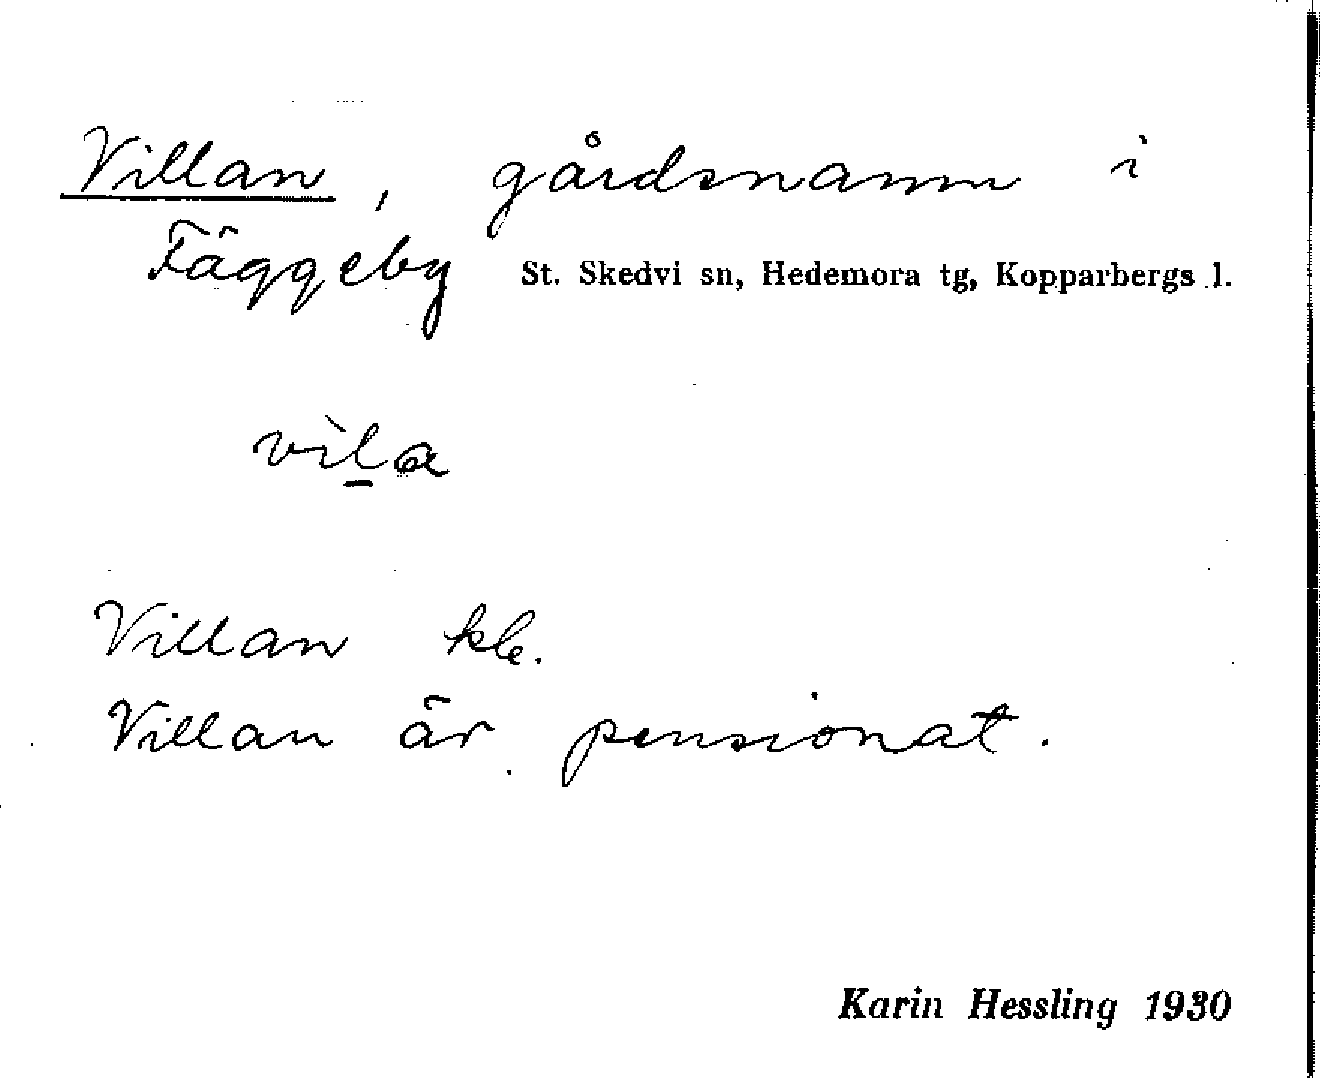 Villan, gårdsnamn i
Fäggeby St. Skedvi sn, Hedemora tg, Kopparbergs l.
vìl̲a
Villan kle.
Villan är pensionat.
Karin Hessling 1930